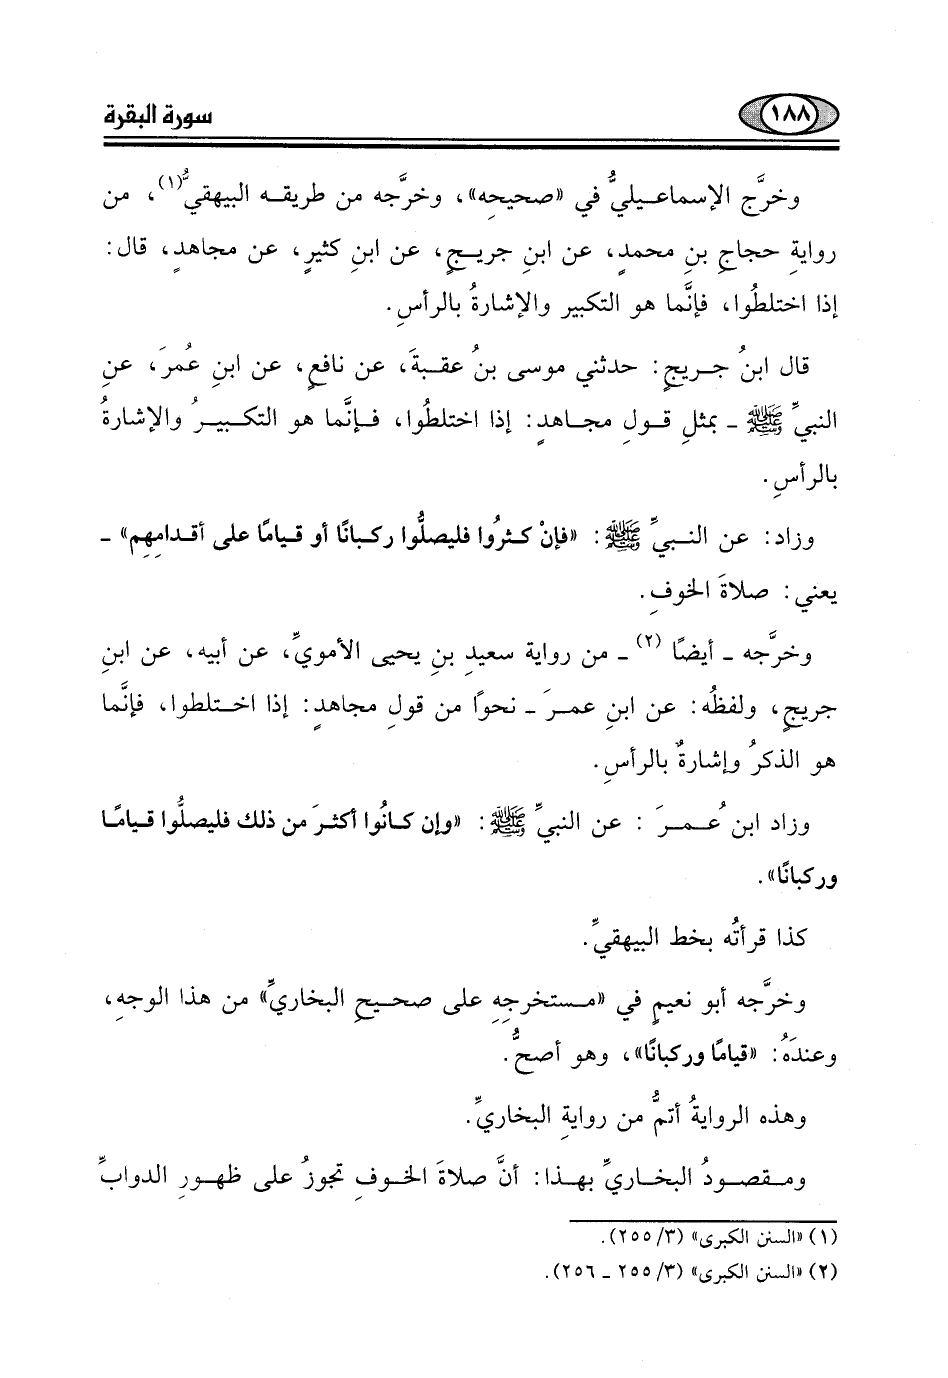 ١٨٨
سورة البقرة
وخرَّج الإسماعيليُّ في «صحيحِه»، وخرَّجه من طريقه البيهقيُّ(١)، من
روايةِ حجاجِ بنِ محمدٍ، عن ابنِ جريجٍ، عن ابنِ كثيرٍ، عن مجاهدٍ، قال:
إذا اختلطُوا، فإنَّما هو التكبير والإشارةُ بالرأسِ.
قال ابنُ جريجٍ: حدثني موسى بنُ عقبةَ، عن نافعٍ، عن ابنِ عُمرَ، عنِ
النبيِّ ﷺ ـ بمثلِ قولِ مجاهدٍ: إذا اختلطُوا، فإنَّما هو التكبيرُ والإشارةُ
بالرأسِ.
وزاد: عن النبيِّ ﷺ: «فإنْ كثرُوا فليصلُّوا ركبانًا أو قيامًا على أقدامِهِم» ـ
يعني: صلاةَ الخوفِ.
وخرَّجه ـ أيضًا (٢) ـ من رواية سعيدِ بنِ يحيى الأمويِّ، عن أبيه، عن ابنِ
جريجٍ، ولفظُه: عن ابنِ عمرَ ـ نحوًا من قولِ مجاهدٍ: إذا اختلطوا، فإنَّما
هو الذكرُ وإشارةٌ بالرأسِ.
وزاد ابن عُمرَ : عن النبيِّ ﷺ: «وإن كانُوا أكثرَ من ذلك فليصلُّوا قيامًا
وركبانًا».
كذا قرأتُه بخط البيهقيِّ.
وخرَّجه أبو نعيمٍ في «مستخرجِهِ على صحيحِ البخاريِّ» من هذا الوجهِ،
وعندَهُ: «قيامًا وركبانًا»، وهو أصحُّ.
وهذه الروايةُ أتمُّ من روايةِ البخاريِّ.
ومقصودُ البخاريِّ بهذا: أنَّ صلاةَ الخوفِ تجوزُ على ظهورِ الدوابِّ
(١) «السنن الكبرى» (٣/ ٢٥٥).
(٢) «السنن الكبرى» (٣/ ٢٥٥ ـ ٢٥٦).